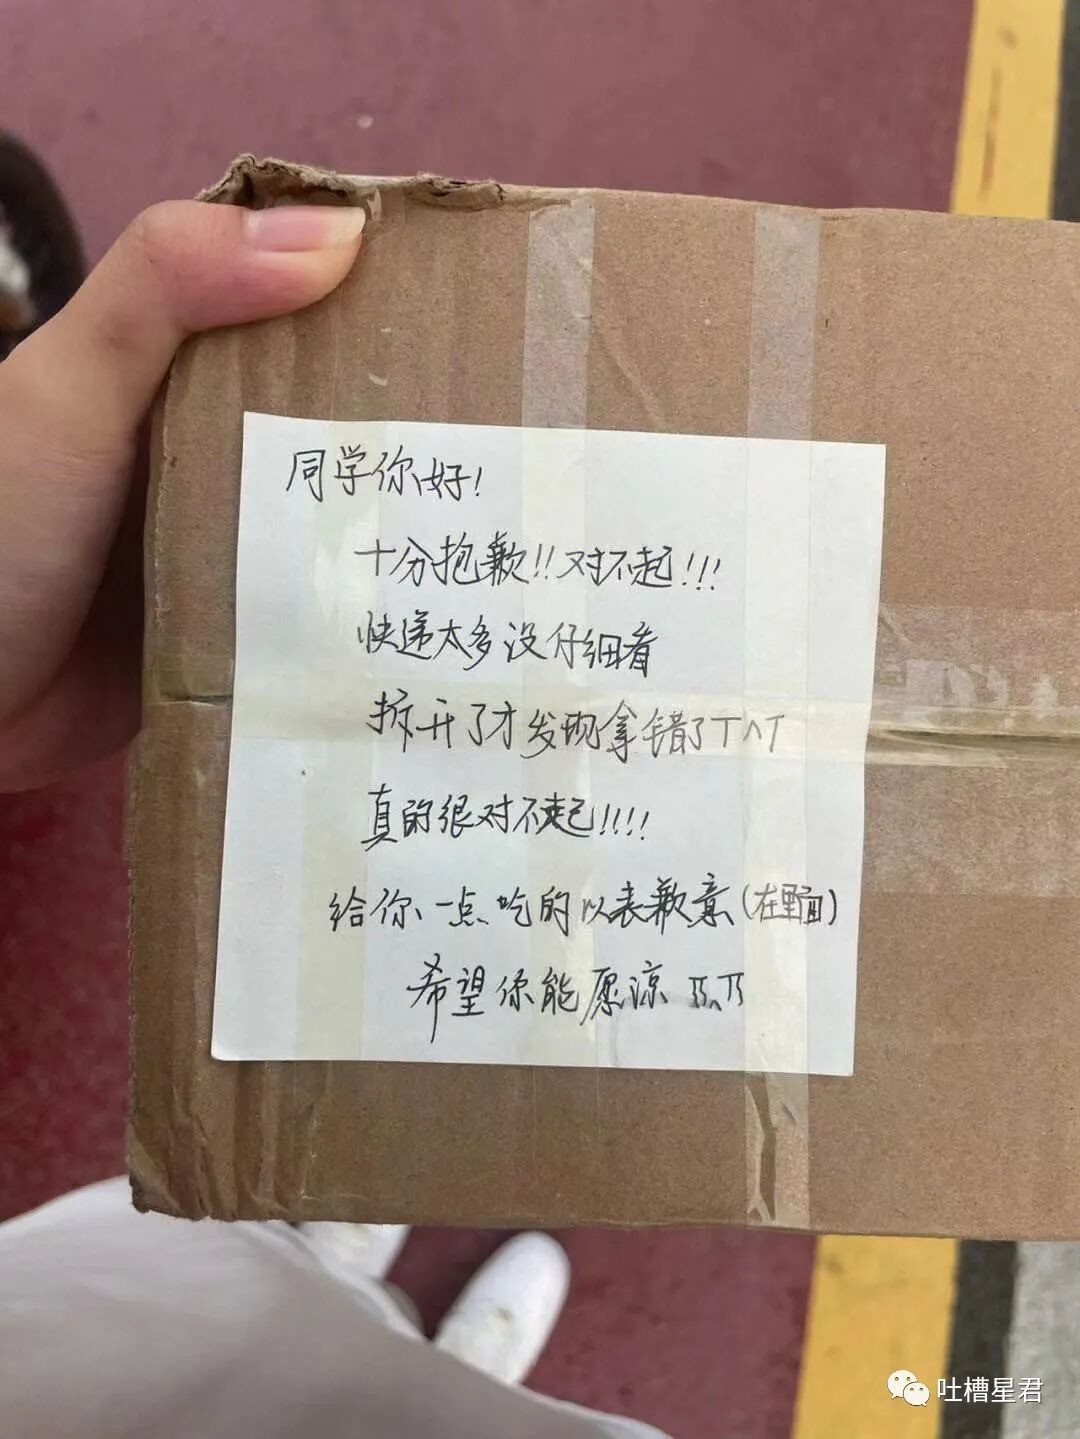 同学你好!
十分抱歉!!对不起!!!
快递太多没仔细看
拆开了才发现拿错了T^T
真的很对不起!!!!
给你一点吃的以表歉意(在里面)
希望你能愿谅
吐槽星君